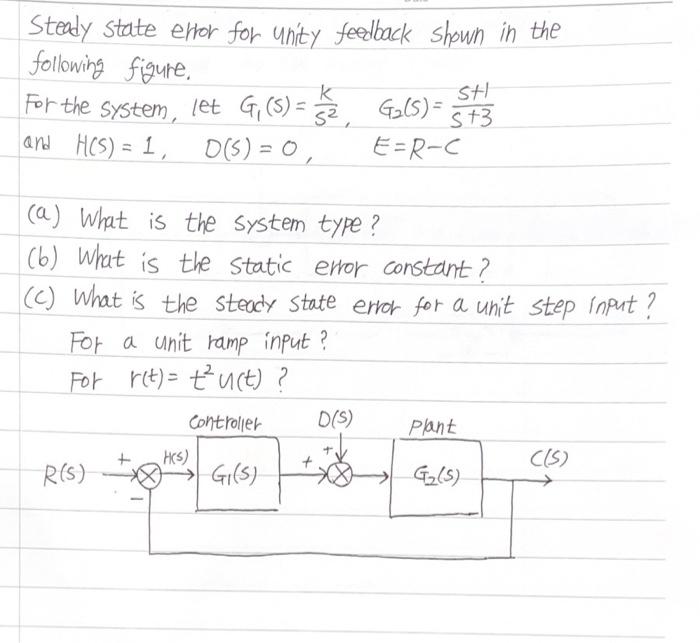 Steady state error for unity feedback shown in the
following figure.
For the system, let G₁(s) = k/s², G₂(s) = s+1/s+3
and H(s) = 1, D(s) = 0, E = R-C
(a) What is the system type?
(b) What is the static error constant?
(c) What is the steady state error for a unit step input?
For a unit ramp input?
For r(t) = t² u(t) ?
Controller D(s) Plant
R(s) + H(s) G₁(s) + + G₂(s) C(s)
-